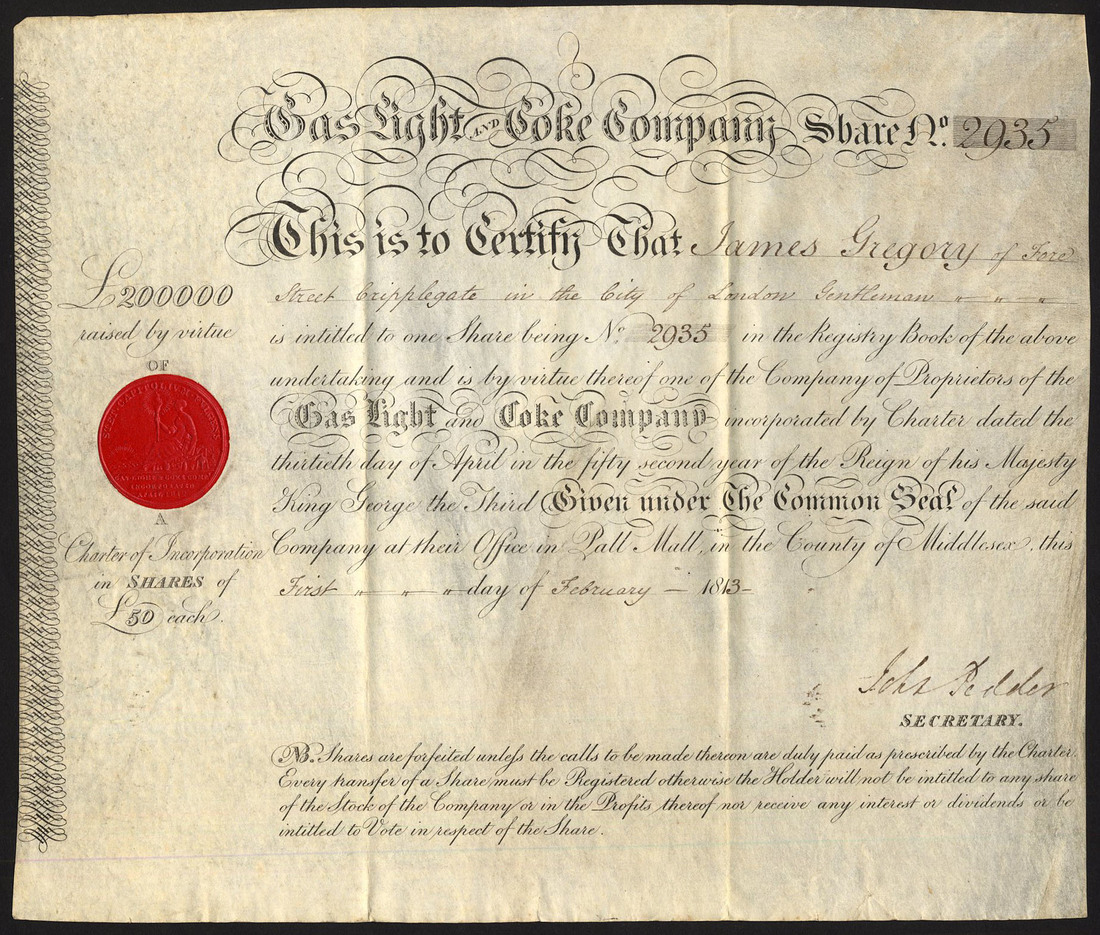 Gas Light AND Coke Company Share No. 2935
This is to Certify That James Gregory of Fore
Street Cripplegate in the City of London Gentleman " " "
is intitled to one Share being No. 2935 in the Registry Book of the above
undertaking and is by virtue thereof one of the Company of Proprietors of the
Gas Light and Coke Company incorporated by Charter dated the
thirtieth day of April in the fifty second year of the Reign of his Majesty
King George the Third Given under The Common Seal of the said
Company at their Office in Pall Mall, in the County of Middlesex, this
First " " " day of February " 1813
£200000
raised by virtue
OF
A
Charter of Incorporation
in SHARES of
£50 each.
John Pedder
SECRETARY.
NB. Shares are forfeited unleſs the calls to be made thereon are duly paid as prescribed by the Charter.
Every transfer of a Share must be Registered otherwise the Holder will not be intitled to any share
of the Stock of the Company or in the Profits thereof nor receive any interest or dividends or be
intitled to Vote in respect of the Share.